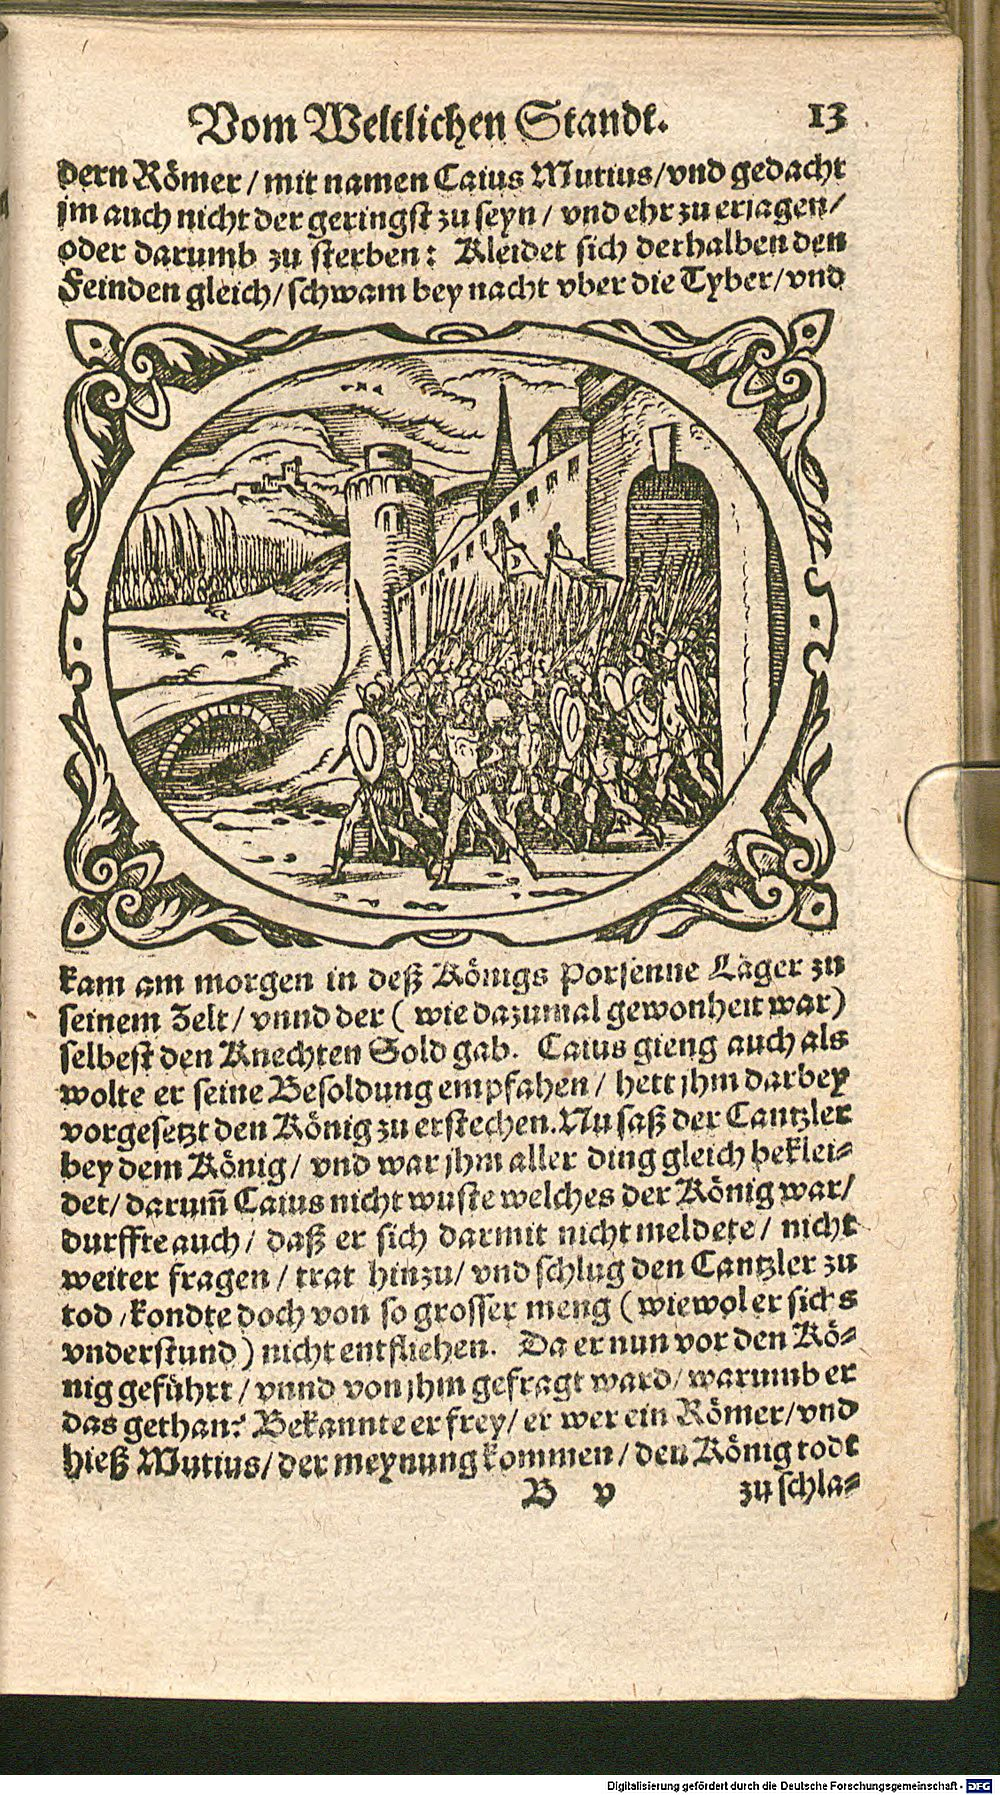 Vom Weltlichen Standt. 13
dern Römer / mit namen Caius Mutius / vnd gedacht
jm auch nicht der geringst zu seyn / vnd ehr zu erjagen /
oder darumb zu sterben: Kleidet sich derhalben den
Feinden gleich / schwam bey nacht vber die Tyber / vnd
kam am morgen in deß Königs Porsenne Läger zu
seinem Zelt / vnnd der ( wie dazumal gewonheit war)
selbest den Knechten Sold gab. Caius gieng auch als
wolte er seine Besoldung empfahen / hett jhm darbey
vorgesetzt den König zu erstechen. Nu saß der Cantzler
bey dem König / vnd war jhm aller ding gleich beklei-
det / darum̃ Caius nicht wuste welches der König war /
durffte auch / daß er sich darmit nicht meldete / nicht
weiter fragen / trat hinzu / vnd schlug den Cantzler zu
tod / kondte doch von so grosser meng ( wiewol er sichs
vnderstund ) nicht entfliehen. Da er nun vor den Kö-
nig geführt / vnnd von jhm gefragt ward / warumb er
das gethan? Bekannte er frey / er wer ein Römer / vnd
hieß Mutius / der meynung kommen / den König todt
B v zu schla-
Digitalisierung gefördert durch die Deutsche Forschungsgemeinschaft - DFG